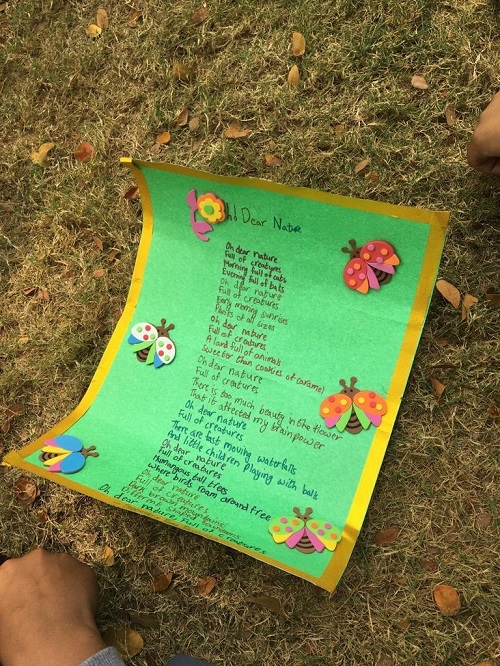 Dear Nature
Oh dear nature
Full of creatures
Morning full of cats
Evening full of bats
Oh dear nature
Full of creatures
Early morning sunrises
Plants of all sizes
Oh dear nature
Full of creatures
A land full of animals
Sweeter than cookies of caramel
Oh dear nature
Full of creatures
There is too much beauty in the flower
That it affected my brainpower
Oh dear nature
Full of creatures
There are fast moving waterfalls
And little children playing with balls
Oh dear nature
Full of creatures
Humangous tall trees
where birds roam around free
Oh dear nature
Full of creatures
broad mountains
Different
Oh dear nature full of creatures